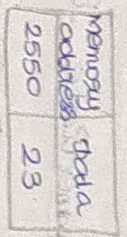 Memory
address Data
2550 23